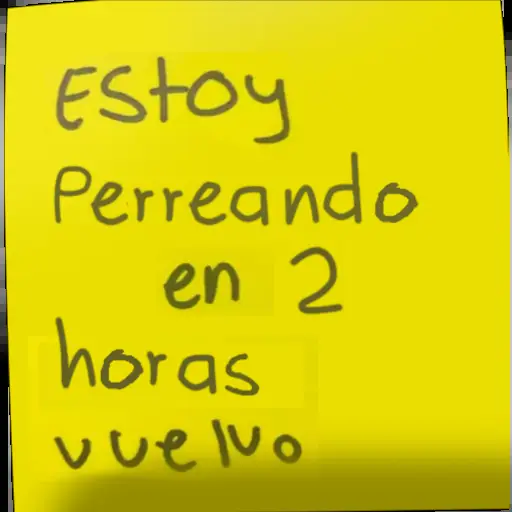 Estoy
Perreando
en 2
horas
vuelvo